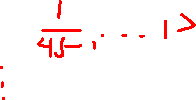 \frac{1}{45}, ... 1 >
⋮